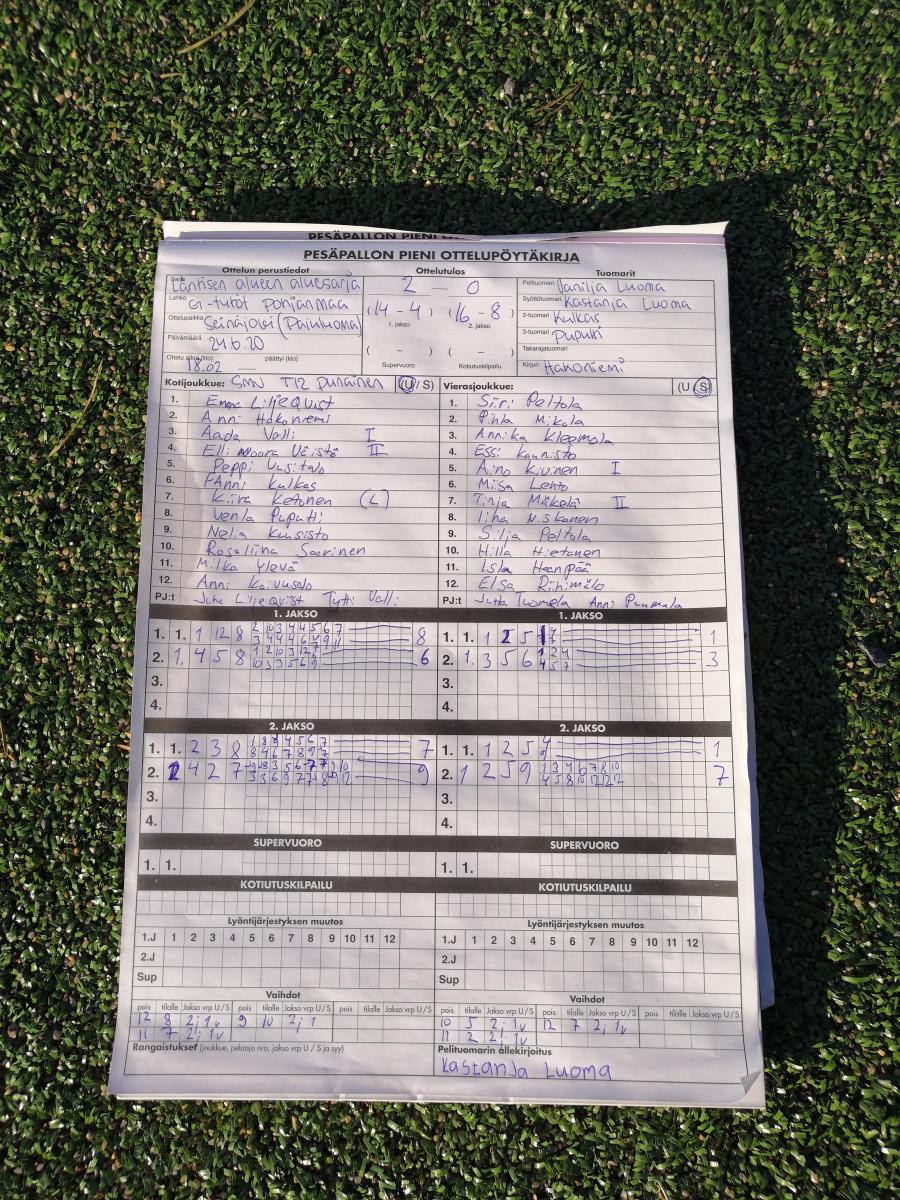 PESÄPALLON PIENI OTTELUPÖYTÄKIRJA
Ottelun perustiedot Ottelutulos Tuomarit
Sarja Läntisen alueen aluesarja
Lohko E-tytöt pohjanmaa
Ottelupaikka Seinäjoki (Pajuluoma)
Päivämäärä 24.6.20
Ottelu alkoi (klo) 18.02 päättyi (klo) —
2 — 0
(14 - 4) (16 - 8)
1. jakso 2. jakso
( - ) ( - )
Supervuoro Kotiutuskilpailu
Pelituomari Vanilja Luoma
Syöttötuomari Kastanja Luoma
2-tuomari Kulkas
3-tuomari Puputti
Takarajatuomari
Kirjuri Hakoniemi
Kotijoukkue: SMJ T12 Punainen (U / S)
1. Emma Liljeqvist
2. Anni Hakoniemi
3. Aada Valli I
4. Elli Noora Väistö II
5. Peppi Uusitalo
6. FAnni Kulkas
7. Kiira Ketonen (L)
8. Venla Puputti
9. Nelia Kuusisto
10. Rosaliina Saarinen
11. Milka Ylevä
12. Anni Koivusalo
PJ:t Juha Liljeqvist Tytti Valli
Vierasjoukkue: (U / S)
1. Siiri Peltola
2. Pihla Mikola
3. Annika Kleemola
4. Essi Kaunisto
5. Aino Kivinen I
6. Miisa Lehto
7. Tinja Mäkelä II
8. Iina Niskanen
9. Silja Peltola
10. Hilla Hietanen
11. Isla Haanpää
12. Elsa Riihimäki
PJ:t Jutta Tuomela Anni Puumala
1. JAKSO
1. 1. 1 12 8 8
2. 1. 4 5 8 6
3.
4.
1. JAKSO
1. 1. 1 2 5 1
2. 1. 3 5 6 3
3.
4.
2. JAKSO
1. 1. 2 3 8 7
2. 4 2 7 9
3.
4.
2. JAKSO
1. 1. 1 2 5 1
2. 1 2 5 9 7
3.
4.
SUPERVUORO SUPERVUORO
1. 1. 1. 1.
KOTIUTUSKILPAILU KOTIUTUSKILPAILU
Lyöntijärjestyksen muutos Lyöntijärjestyksen muutos
1.J 1 2 3 4 5 6 7 8 9 10 11 12 1.J 1 2 3 4 5 6 7 8 9 10 11 12
2.J 2.J
Sup Sup
Vaihdot Vaihdot
pois tilalle Jakso vrp U / S pois tilalle Jakso vrp U / S pois tilalle Jakso vrp U / S
12 8 2; 1v 9 10 2; 1
11 7 2; 1v
pois tilalle Jakso vrp U / S pois tilalle Jakso vrp U / S pois tilalle Jakso vrp U / S
10 5 2; 1v 12 7 2; 1v
11 2 2; 1v
Rangaistukset (joukkue, pelaaja nro, jakso vrp U / S ja syy)
Pelituomarin allekirjoitus
Kastanja Luoma